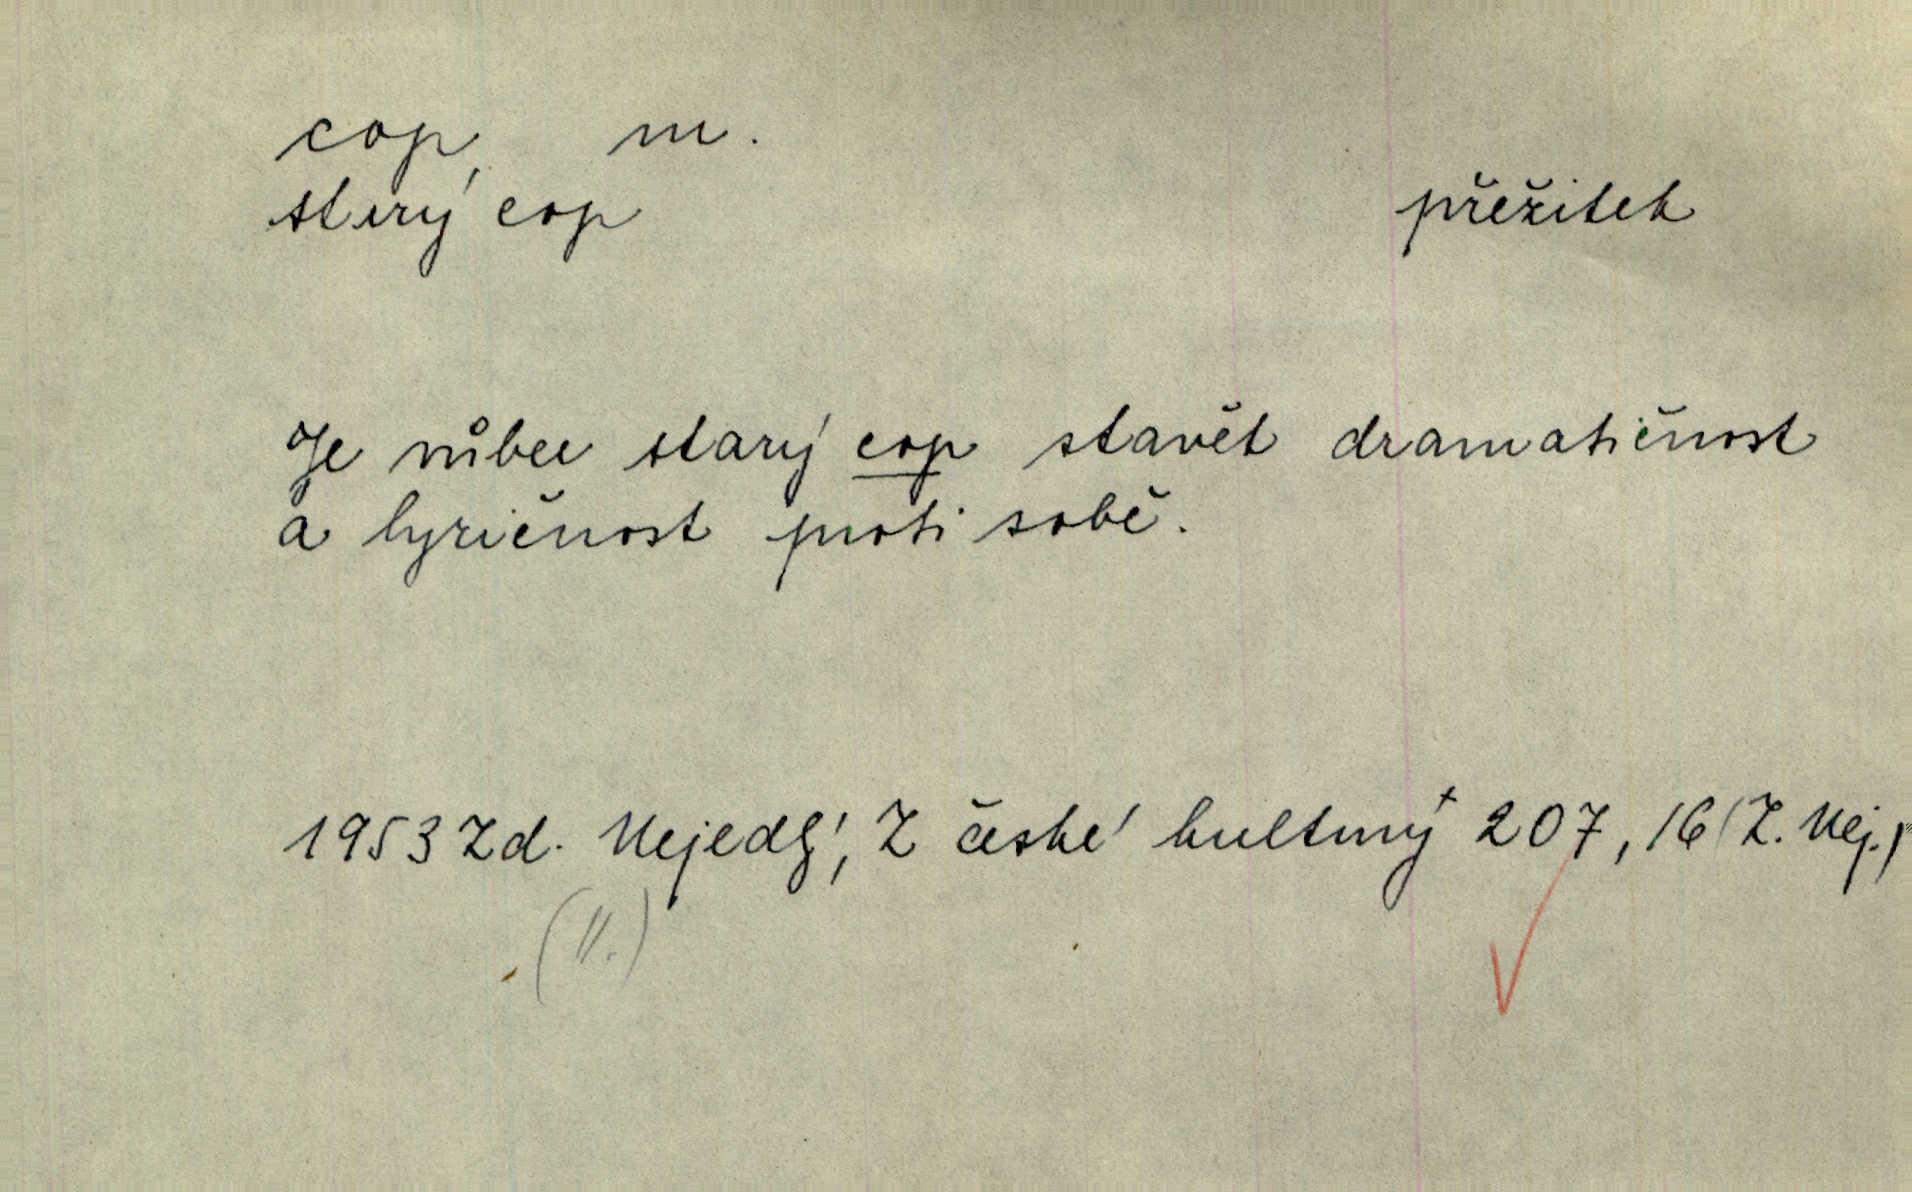 cop, m.
starý cop přežitek
Je vůbec starý cop stavět dramatičnost
a lyričnost proti sobě.
1953 Zd. Nejedlý, Z české kultury + 207, 16 (Z. Nej.)
(II.)